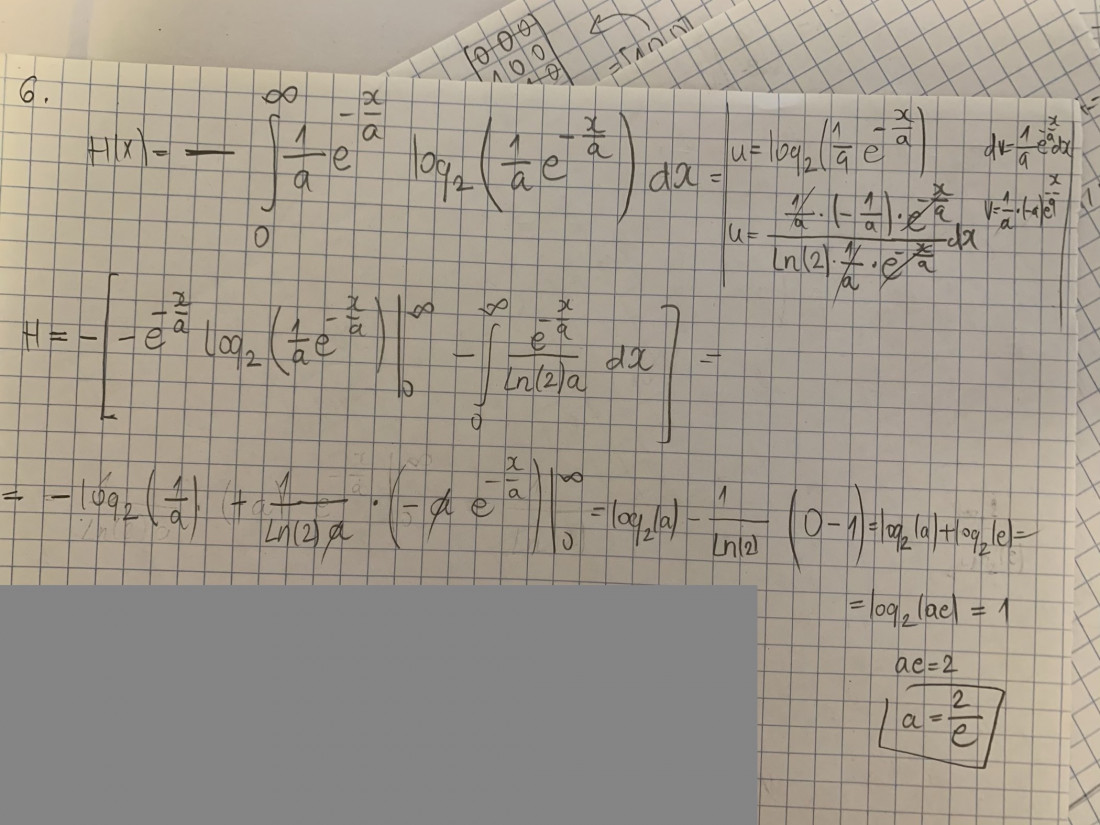 000
100
0
6.
H(x) = - ∫₀^∞ 1/a e^(-x/a) log₂(1/a e^(-x/a)) dx = | u = log₂(1/a e^(-x/a))   dv = 1/a e^(-x/a) dx
u = (1/a · (-1/a) · e^(-x/a)) / (ln(2) · 1/a · e^(-x/a)) dx   v = 1/a · (-a) e^(-x/a) |
H = - [ - e^(-x/a) log₂(1/a e^(-x/a)) |₀^∞ - ∫₀^∞ e^(-x/a) / (ln(2)a) dx ] =
= - log₂(1/a) + 1/(ln(2) a) · (- a e^(-x/a)) |₀^∞ = log₂(a) - 1/ln(2) (0 - 1) = log₂(a) + log₂(e) =
= log₂(ae) = 1
ae = 2
a = 2/e